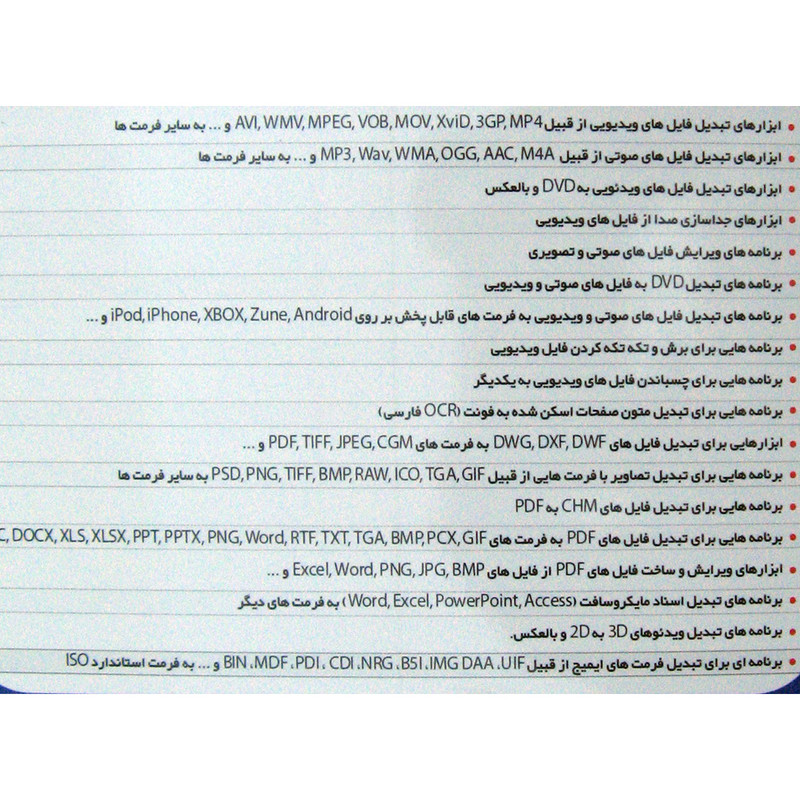 ابزارهای تبدیل فایل های ویدیویی از قبیل AVI, WMV, MPEG, VOB, MOV, XviD, 3GP, MP4 و ... به سایر فرمت ها
ابزارهای تبدیل فایل های صوتی از قبیل MP3, Wav, WMA, OGG, AAC, M4A و ... به سایر فرمت ها
ابزارهای تبدیل فایل های ویدئویی به DVD و بالعکس
ابزارهای جداسازی صدا از فایل های ویدیویی
برنامه های ویرایش فایل های صوتی و تصویری
برنامه های تبدیل DVD به فایل های صوتی و ویدیویی
برنامه های تبدیل فایل های صوتی و ویدیویی به فرمت های قابل پخش بر روی iPod, iPhone, XBOX, Zune, Android و ...
برنامه هایی برای برش و تکه تکه کردن فایل ویدیویی
برنامه هایی برای چسباندن فایل های ویدیویی به یکدیگر
برنامه هایی برای تبدیل متون صفحات اسکن شده به فونت (OCR فارسی)
ابزارهایی برای تبدیل فایل های DWG, DXF, DWF به فرمت های PDF, TIFF, JPEG, CGM و ...
برنامه هایی برای تبدیل تصاویر با فرمت هایی از قبیل PSD, PNG, TIFF, BMP, RAW, ICO, TGA, GIF به سایر فرمت ها
برنامه هایی برای تبدیل فایل های CHM به PDF
برنامه هایی برای تبدیل فایل های PDF به فرمت های C, DOCX, XLS, XLSX, PPT, PPTX, PNG, Word, RTF, TXT, TGA, BMP, PCX, GIF
ابزارهای ویرایش و ساخت فایل های PDF از فایل های Excel, Word, PNG, JPG, BMP و ...
برنامه های تبدیل اسناد مایکروسافت (Word, Excel, PowerPoint, Access) به فرمت های دیگر
برنامه های تبدیل ویدئوهای 3D به 2D و بالعکس.
برنامه ای برای تبدیل فرمت های ایمیج از قبیل BIN ،MDF ،PDI ، CDI ،NRG ،B5I ،IMG DAA ،UIF و ... به فرمت استاندارد ISO